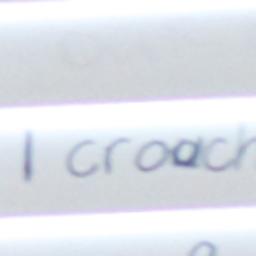 I croach